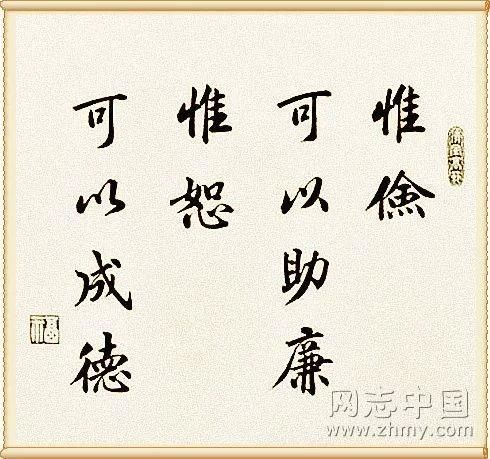 惟俭
可以助廉
惟恕
可以成德
网志中国
www.zhmy.com